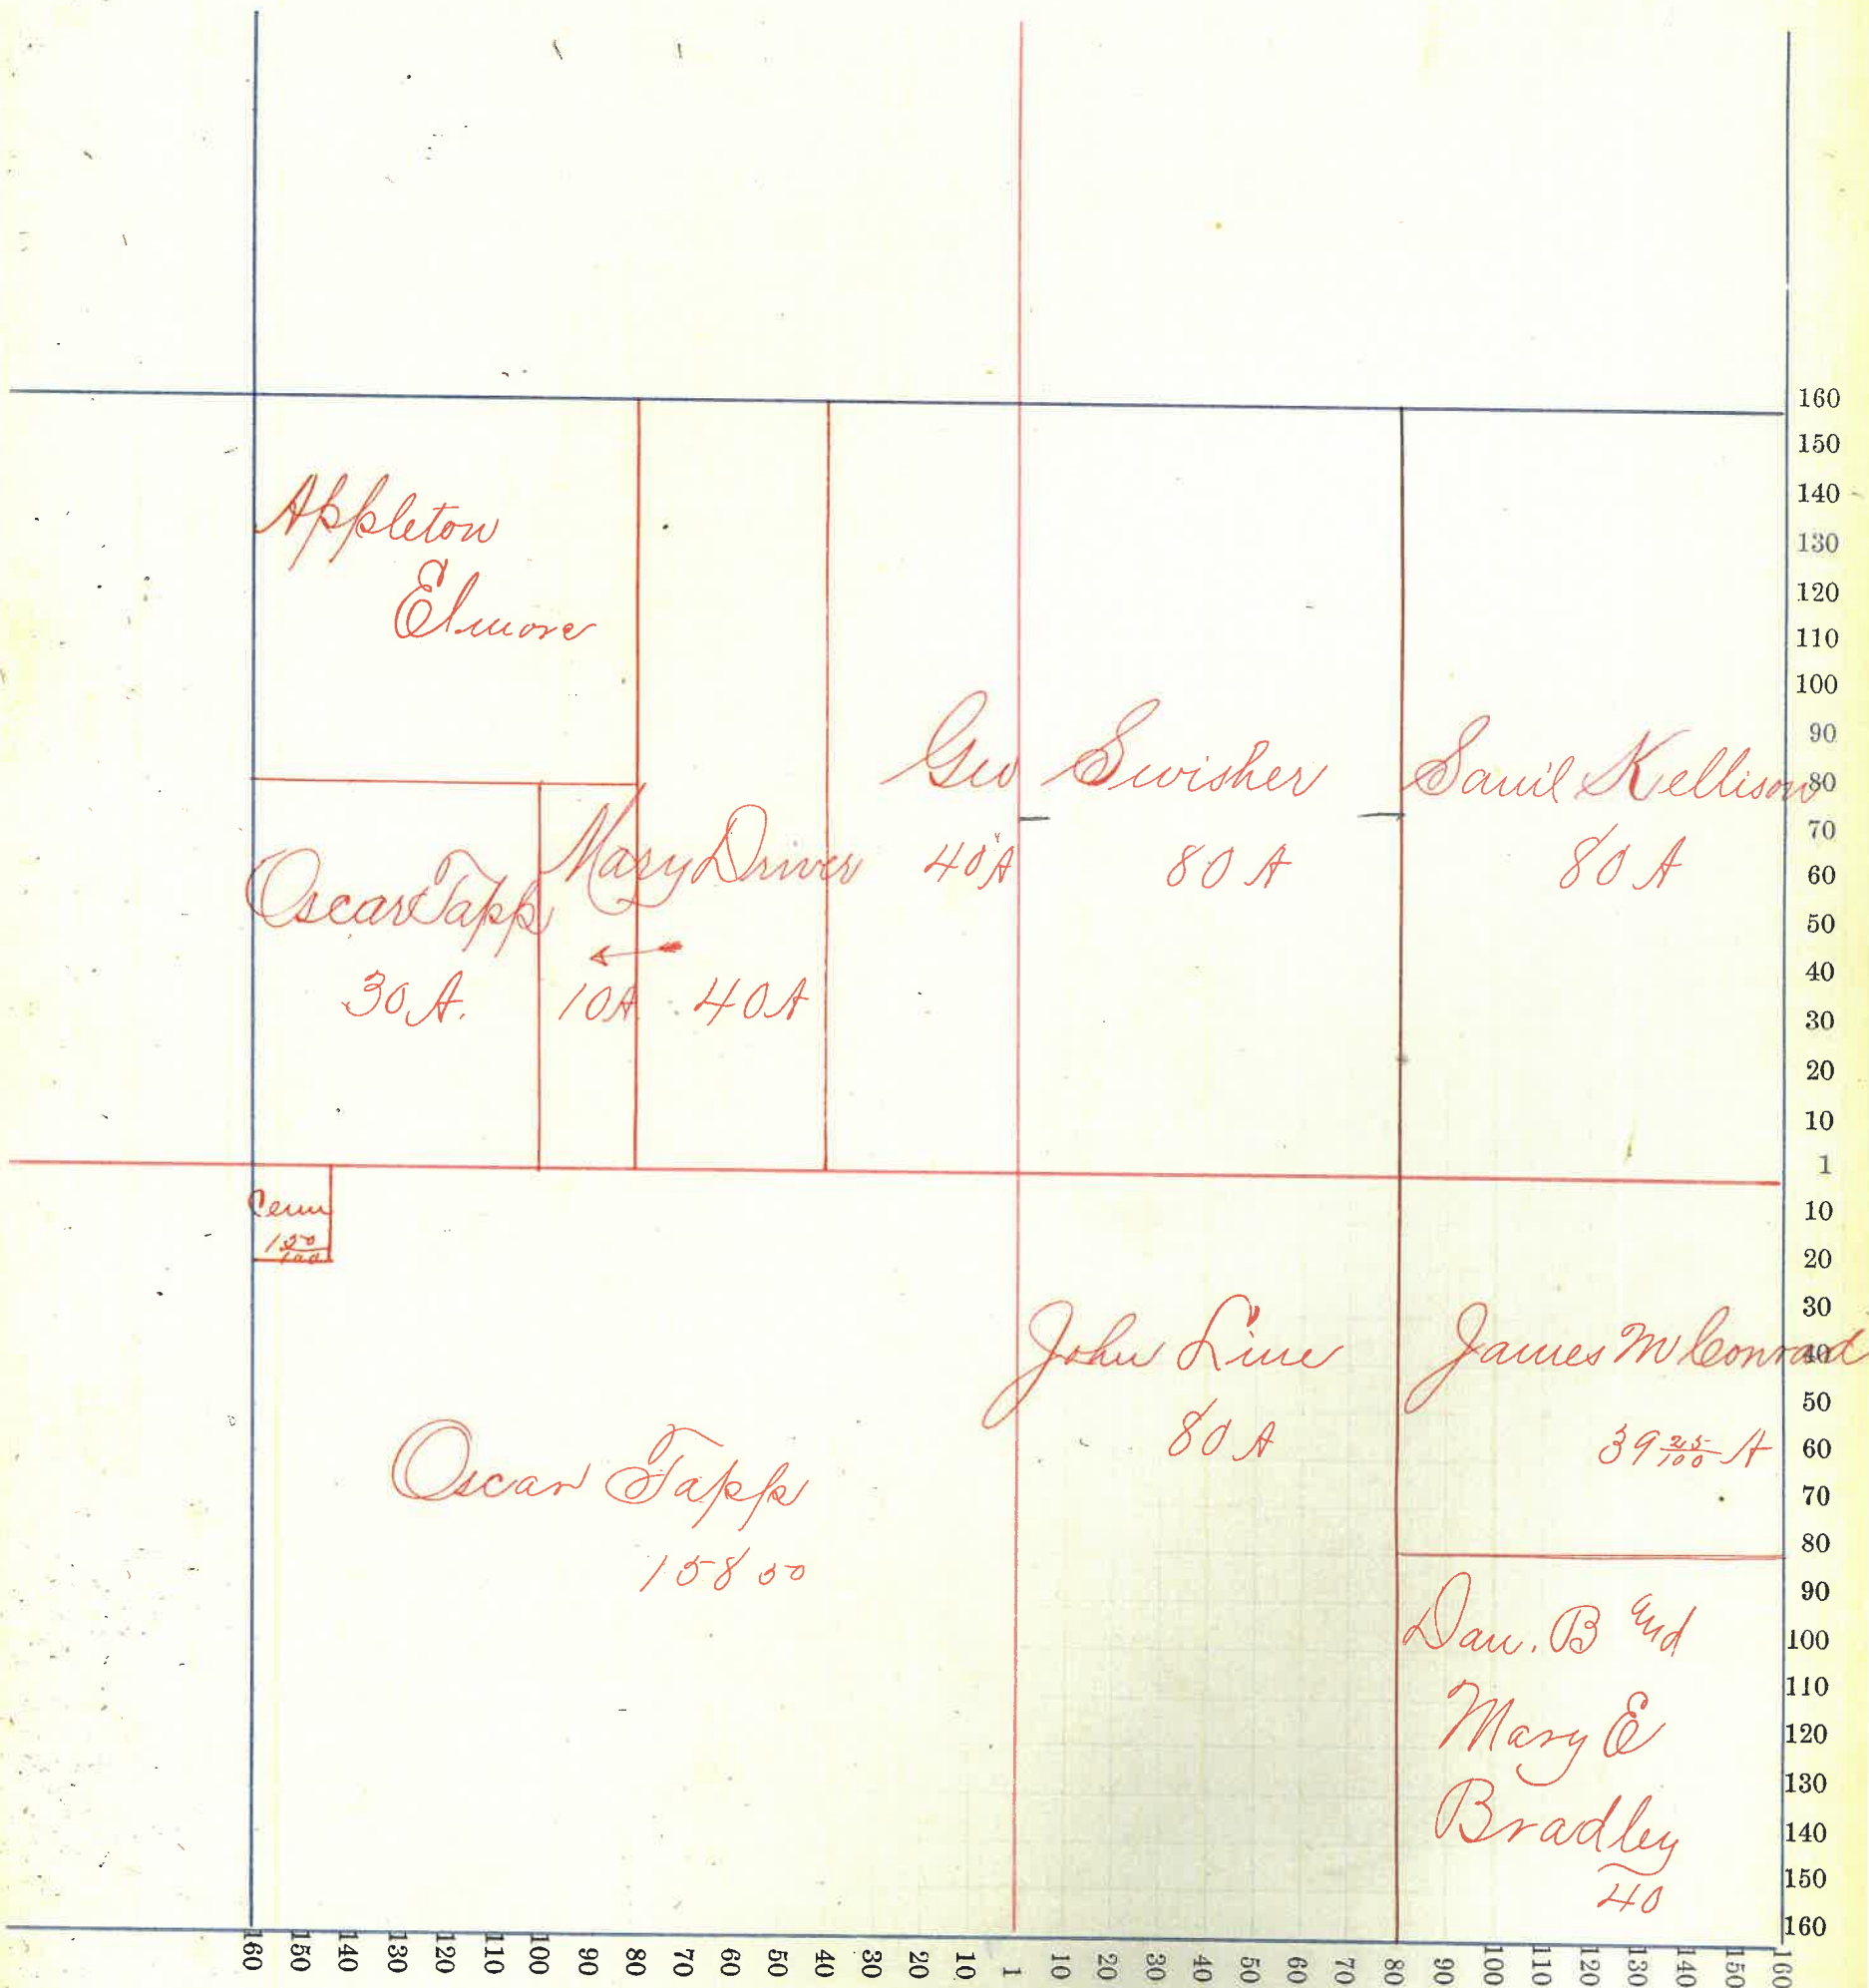 Appleton
Elmore
Geo Swisher
40 A
80 A
Sam'l Kellison
80 A
Oscar Tapp
30 A.
Mary Driver
10A
40A
Cem
1 50/100
Oscar Tapp
158 50
John Line
80 A
James M Conrad
39 25/100 A
Dan. B and
Mary E
Bradley
40
160
150
140
130
120
110
100
90
80
70
60
50
40
30
20
10
1
10
20
30
40
50
60
70
80
90
100
110
120
130
140
150
160
160 150 140 130 120 110 100 90 80 70 60 50 40 30 20 10 1 10 20 30 40 50 60 70 80 90 100 110 120 130 140 150 160